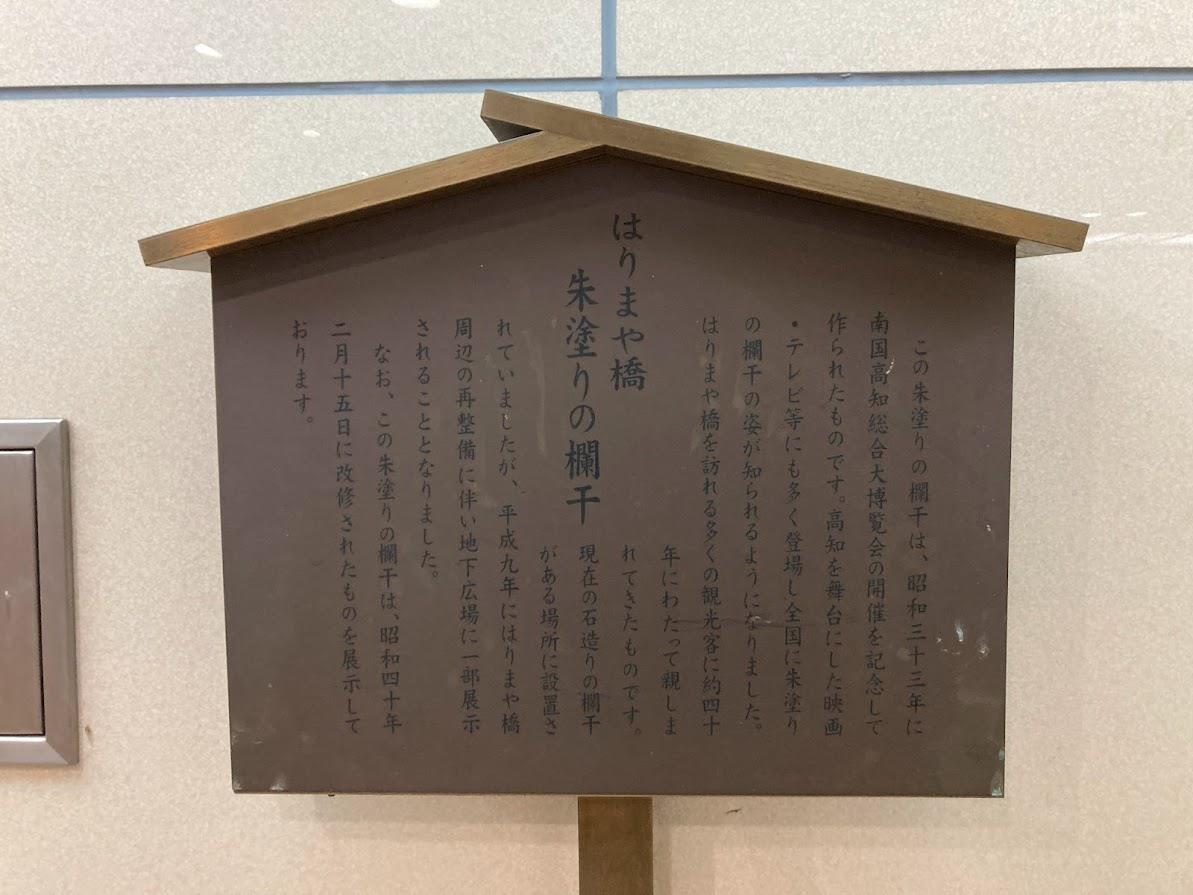 はりまや橋
朱塗りの欄干
この朱塗りの欄干は、昭和三十三年に
南国高知総合大博覧会の開催を記念して
作られたものです。高知を舞台にした映画
・テレビ等にも多く登場し全国に朱塗り
の欄干の姿が知られるようになりました。
はりまや橋を訪れる多くの観光客に約四十
年にわたって親しま
れてきたものです。
現在の石造りの欄干
がある場所に設置さ
れていましたが、平成九年にはりまや橋
周辺の再整備に伴い地下広場に一部展示
されることとなりました。
なお、この朱塗りの欄干は、昭和四十年
二月十五日に改修されたものを展示して
おります。